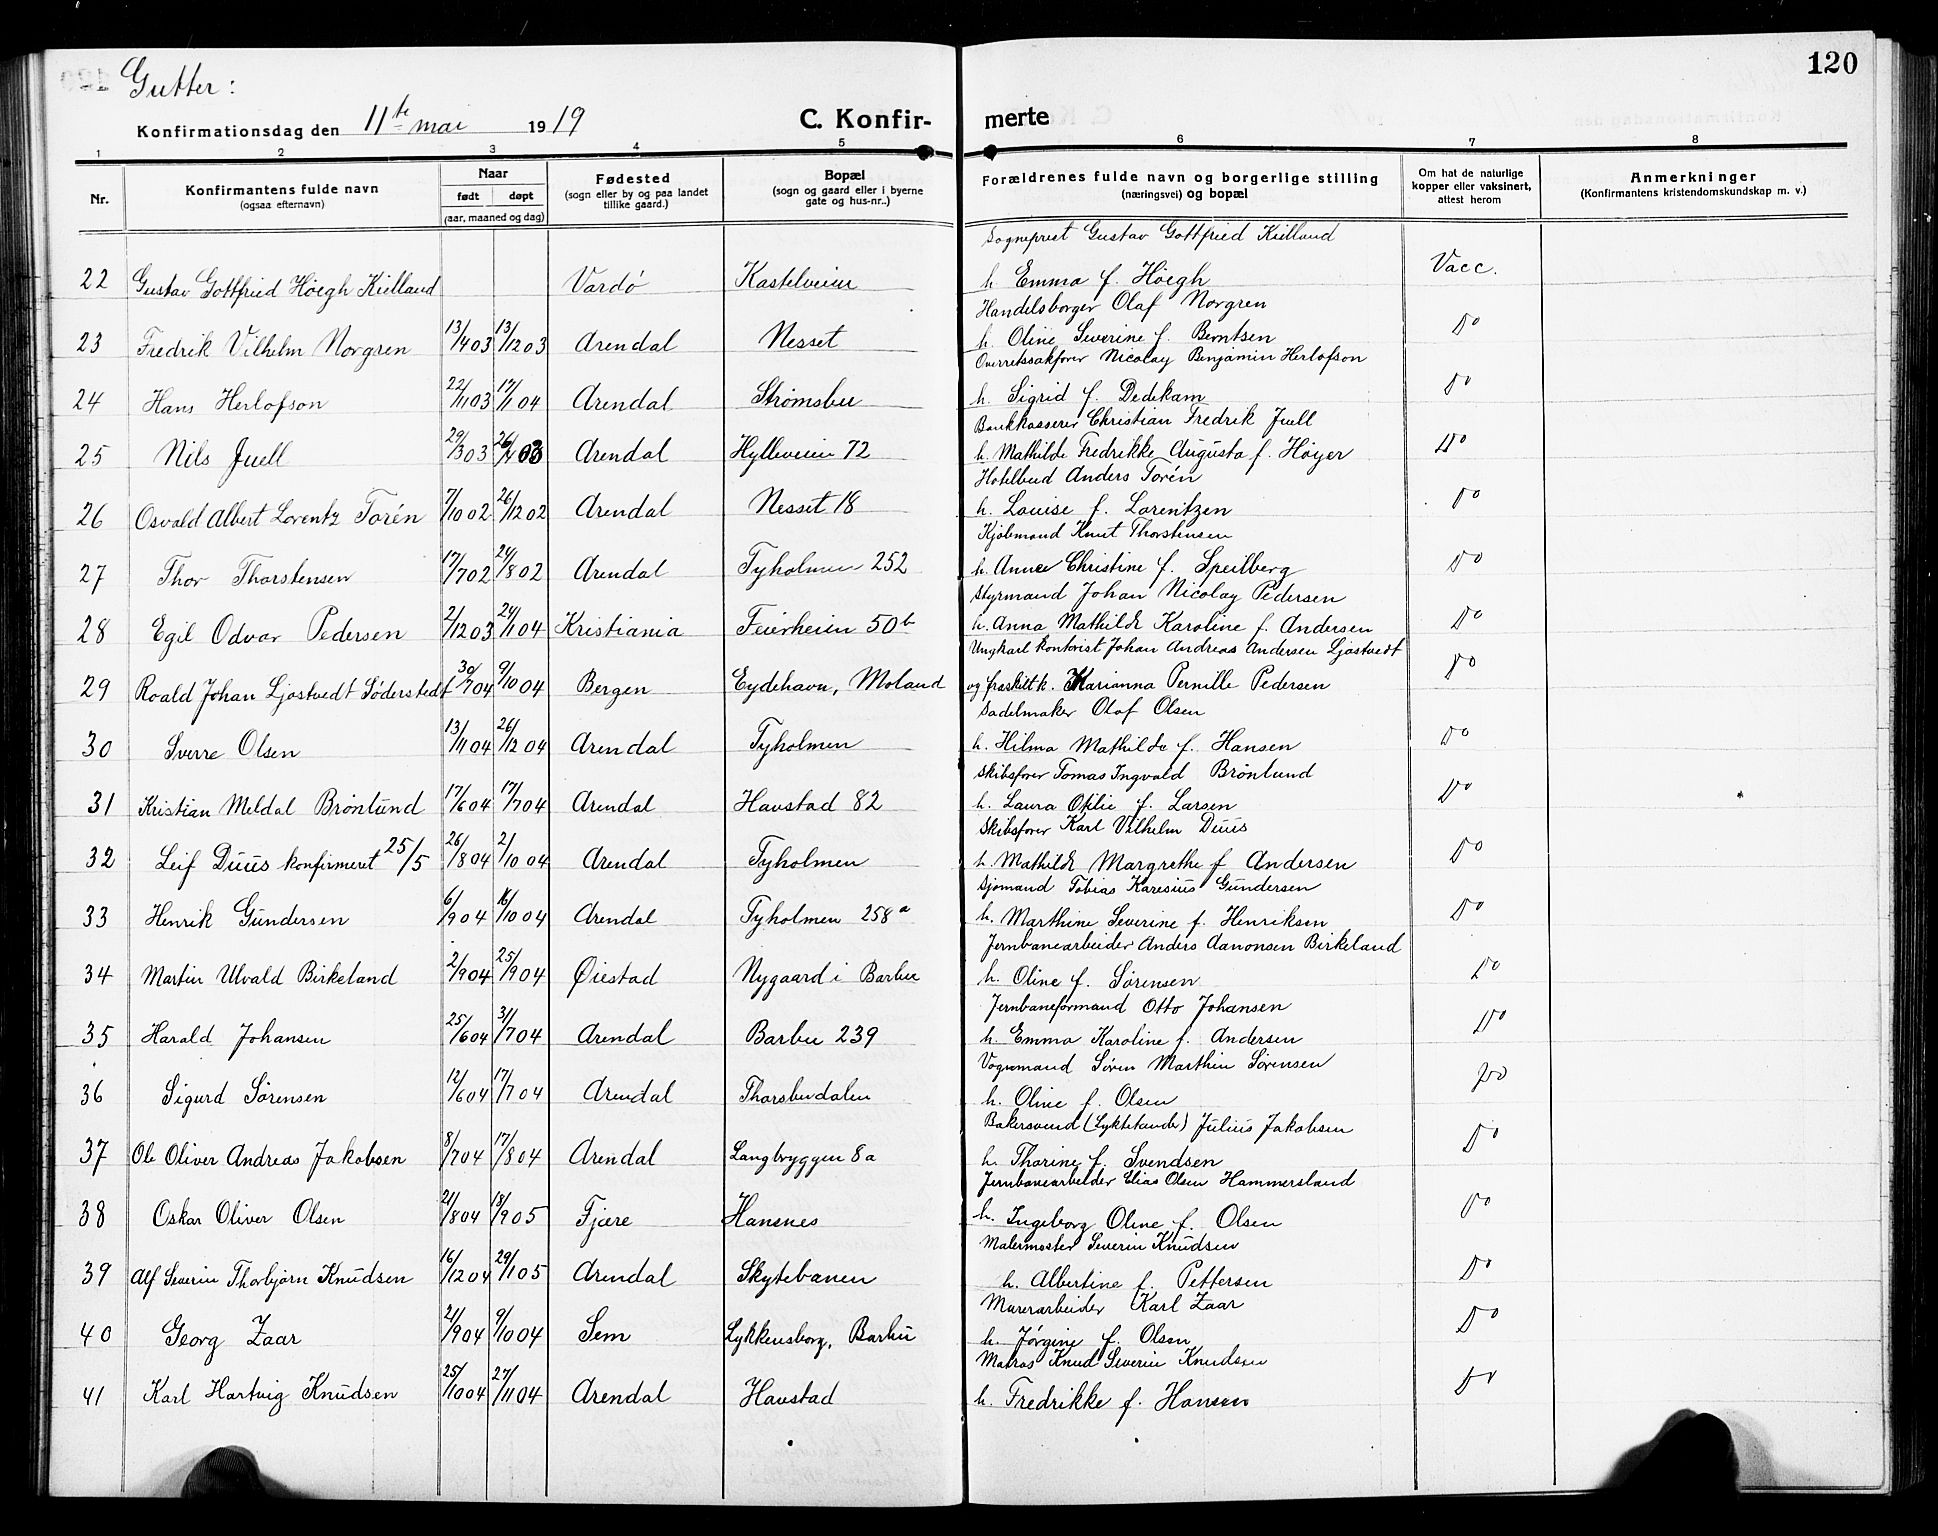 120
Gutter:
Konfirmationsdag den 11te mai 1919
C. Konfirmerte
1 2 3 4 5 6 7 8
Nr.
Konfirmantens fulde navn
(ogsaa efternavn)
Naar
født døpt
(aar, maaned og dag)
Fødested
(sogn eller by og paa landet
tillike gaard.)
Bopæl
(sogn og gaard eller i byerne
gate og hus-nr..)
Forældrenes fulde navn og borgerlige stilling
(næringsvei) og bopæl
Om hat de naturlige
kopper eller vaksinert,
attest herom
Anmerkninger
(Konfirmantens kristendomskundskap m. v.)
Sogneprest Gustav Gottfried Kielland
22 Gustav Gottfried Höegh Kielland Vardö Kastelveien h. Emma f. Höegh Vacc.
Handelsborger Olaf Norgren
23 Fredrik Vilhelm Norgren 13/4 03 13/12 03 Arendal Nesset h. Oline Severine f. Berntsen Do
Overretssakfører Nicolay Benjamin Herlofson
24 Hans Herlofson 22/11 03 17/1 04 Arendal Strømsbu h. Sigrid f. Dedekam Do
Bankkasserer Christian Fredrik Juell
25 Nils Juell 29/3 03 26/4 03 Arendal Hylleveien 72 h. Mathilde Fredrikke Augusta f. Höyer Do
Hotelbud Anders Torén
26 Osvald Albert Lorentz Torén 7/10 02 26/12 02 Arendal Nesset 18 h. Louise f. Lorentzen Do
Kjøbmand Knut Thorstensen
27 Thor Thorstensen 17/7 02 24/8 02 Arendal Tyholmen 252 h. Anne Christine f. Speilberg Do
Styrmand Johan Nicolay Pedersen
28 Egil Odvar Pedersen 2/12 03 24/1 04 Kristiania Feierheien 50b h. Anna Mathilde Karoline f. Andersen Do
Ungkarl kontorist Johan Andreas Andersen Ljostvedt
29 Roald Johan Ljostvedt Söderstedt 30/7 04 9/10 04 Bergen Eydehavn, Moland og fraskilt k. Marianna Pernille Pedersen Do
Sadelmaker Olaf Olsen
30 Sverre Olsen 13/11 04 26/12 04 Arendal Tyholmen h. Hilma Mathilde f. Hansen Do
Skibsfører Tomas Ingvald Brönlund
31 Kristian Meldal Brönlund 17/6 04 17/7 04 Arendal Havstad 82 h. Laura Otilie f. Larsen Do
Skibsfører Karl Vilhelm Duus
32 Leif Duus konfirmeret 25/5 26/8 04 2/10 04 Arendal Tyholmen h. Mathilde Margrethe f. Andersen Do
Sjömand Tobias Karesius Gundersen
33 Henrik Gundersen 6/9 04 16/10 04 Arendal Tyholmen 258a h. Marthine Severine f. Henriksen Do
Jernbanearbeider Anders Aanonsen Birkeland
34 Martin Ulvald Birkeland 2/9 04 25/9 04 Øiestad Nygaard i Barbu h. Oline f. Sørensen Do
Jernbaneformand Otto Johansen
35 Harald Johansen 25/6 04 31/7 04 Arendal Barbu 239 h. Emma Karoline f. Andersen Do
Vognmand Søren Marthin Sørensen
36 Sigurd Sørensen 12/6 04 17/7 04 Arendal Thorsbudalen h. Oline f. Olsen Do
Bakersvend (Lyktetænder) Julius Jakobsen
37 Ole Oliver Andreas Jakobsen 8/7 04 17/8 04 Arendal Langbryggen 8a h. Thorine f. Svendsen Do
Jernbanearbeider Elias Olsen Hammersland
38 Oskar Oliver Olsen 21/8 04 18/9 05 Fjære Hansnes h. Ingeborg Oline f. Olsen Do
Malermester Severin Knudsen
39 Alf Severin Thorbjørn Knudsen 16/12 04 29/1 05 Arendal Skytebanen h. Albertine f. Pettersen Do
Murerarbeider Karl Zaar
40 Georg Zaar 21/9 04 9/10 04 Sem Lykkensborg, Barbu h. Jörgine f. Olsen Do
Matros Knud Severin Knudsen
41 Karl Hartvig Knudsen 25/10 04 27/11 04 Arendal Havstad h. Fredrikke f. Hansen Do